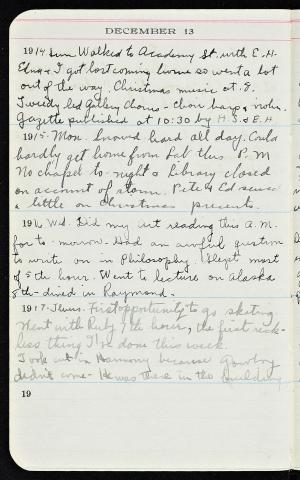 DECEMBER 13
1914 Sun. Walked to Academy St. with E. H.
Edna & I got lost coming home so went a lot
out of the way. Christmas music at 8.
Tweedy led Gallery Chorus - Choir harp &
Gazette published at 10:30 by H. S. & E. H
1915- Mon. Snowed hard all day. Could
hardly get home from Lab this P. M
No chapel to-night & Library closed
on account of storm. Pete & Ed sewed
a little on Christmas presents.
1916 Wed. Did my art reading this A. M.
for to-morrow. Had an awful question
to write on in Philosophy. Slept most
of 5th hour. Went to lecture on Alaska
8th - dined in Raymond.
1917 - Thurs. First opportunity to go skating.
Went with Ruby, 1 the hour, the first reck-
less thing I've done this week.
Took cut in Harmony because
didn't come - He was there in the building
19